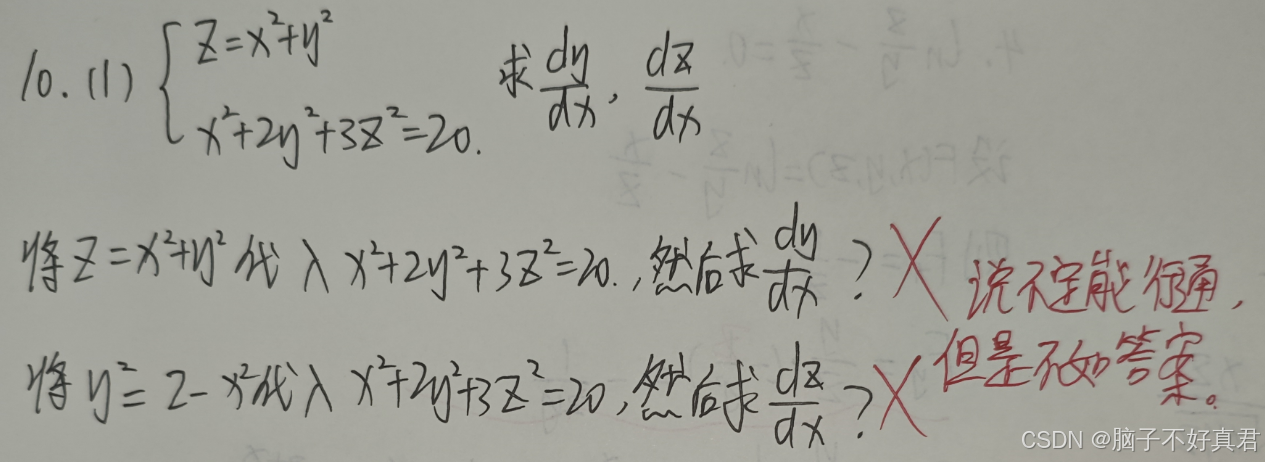 10. (1) { z=x²+y²
x²+2y²+3z²=20. 求 dy/dx, dz/dx
将z=x²+y²代入x²+2y²+3z²=20.,然后求dy/dx? ×
说不定能行通,
将y²=2-x²代入x²+2y²+3z²=20,然后求dz/dx? ×
但是不如答案。
CSDN @脑子不好真君